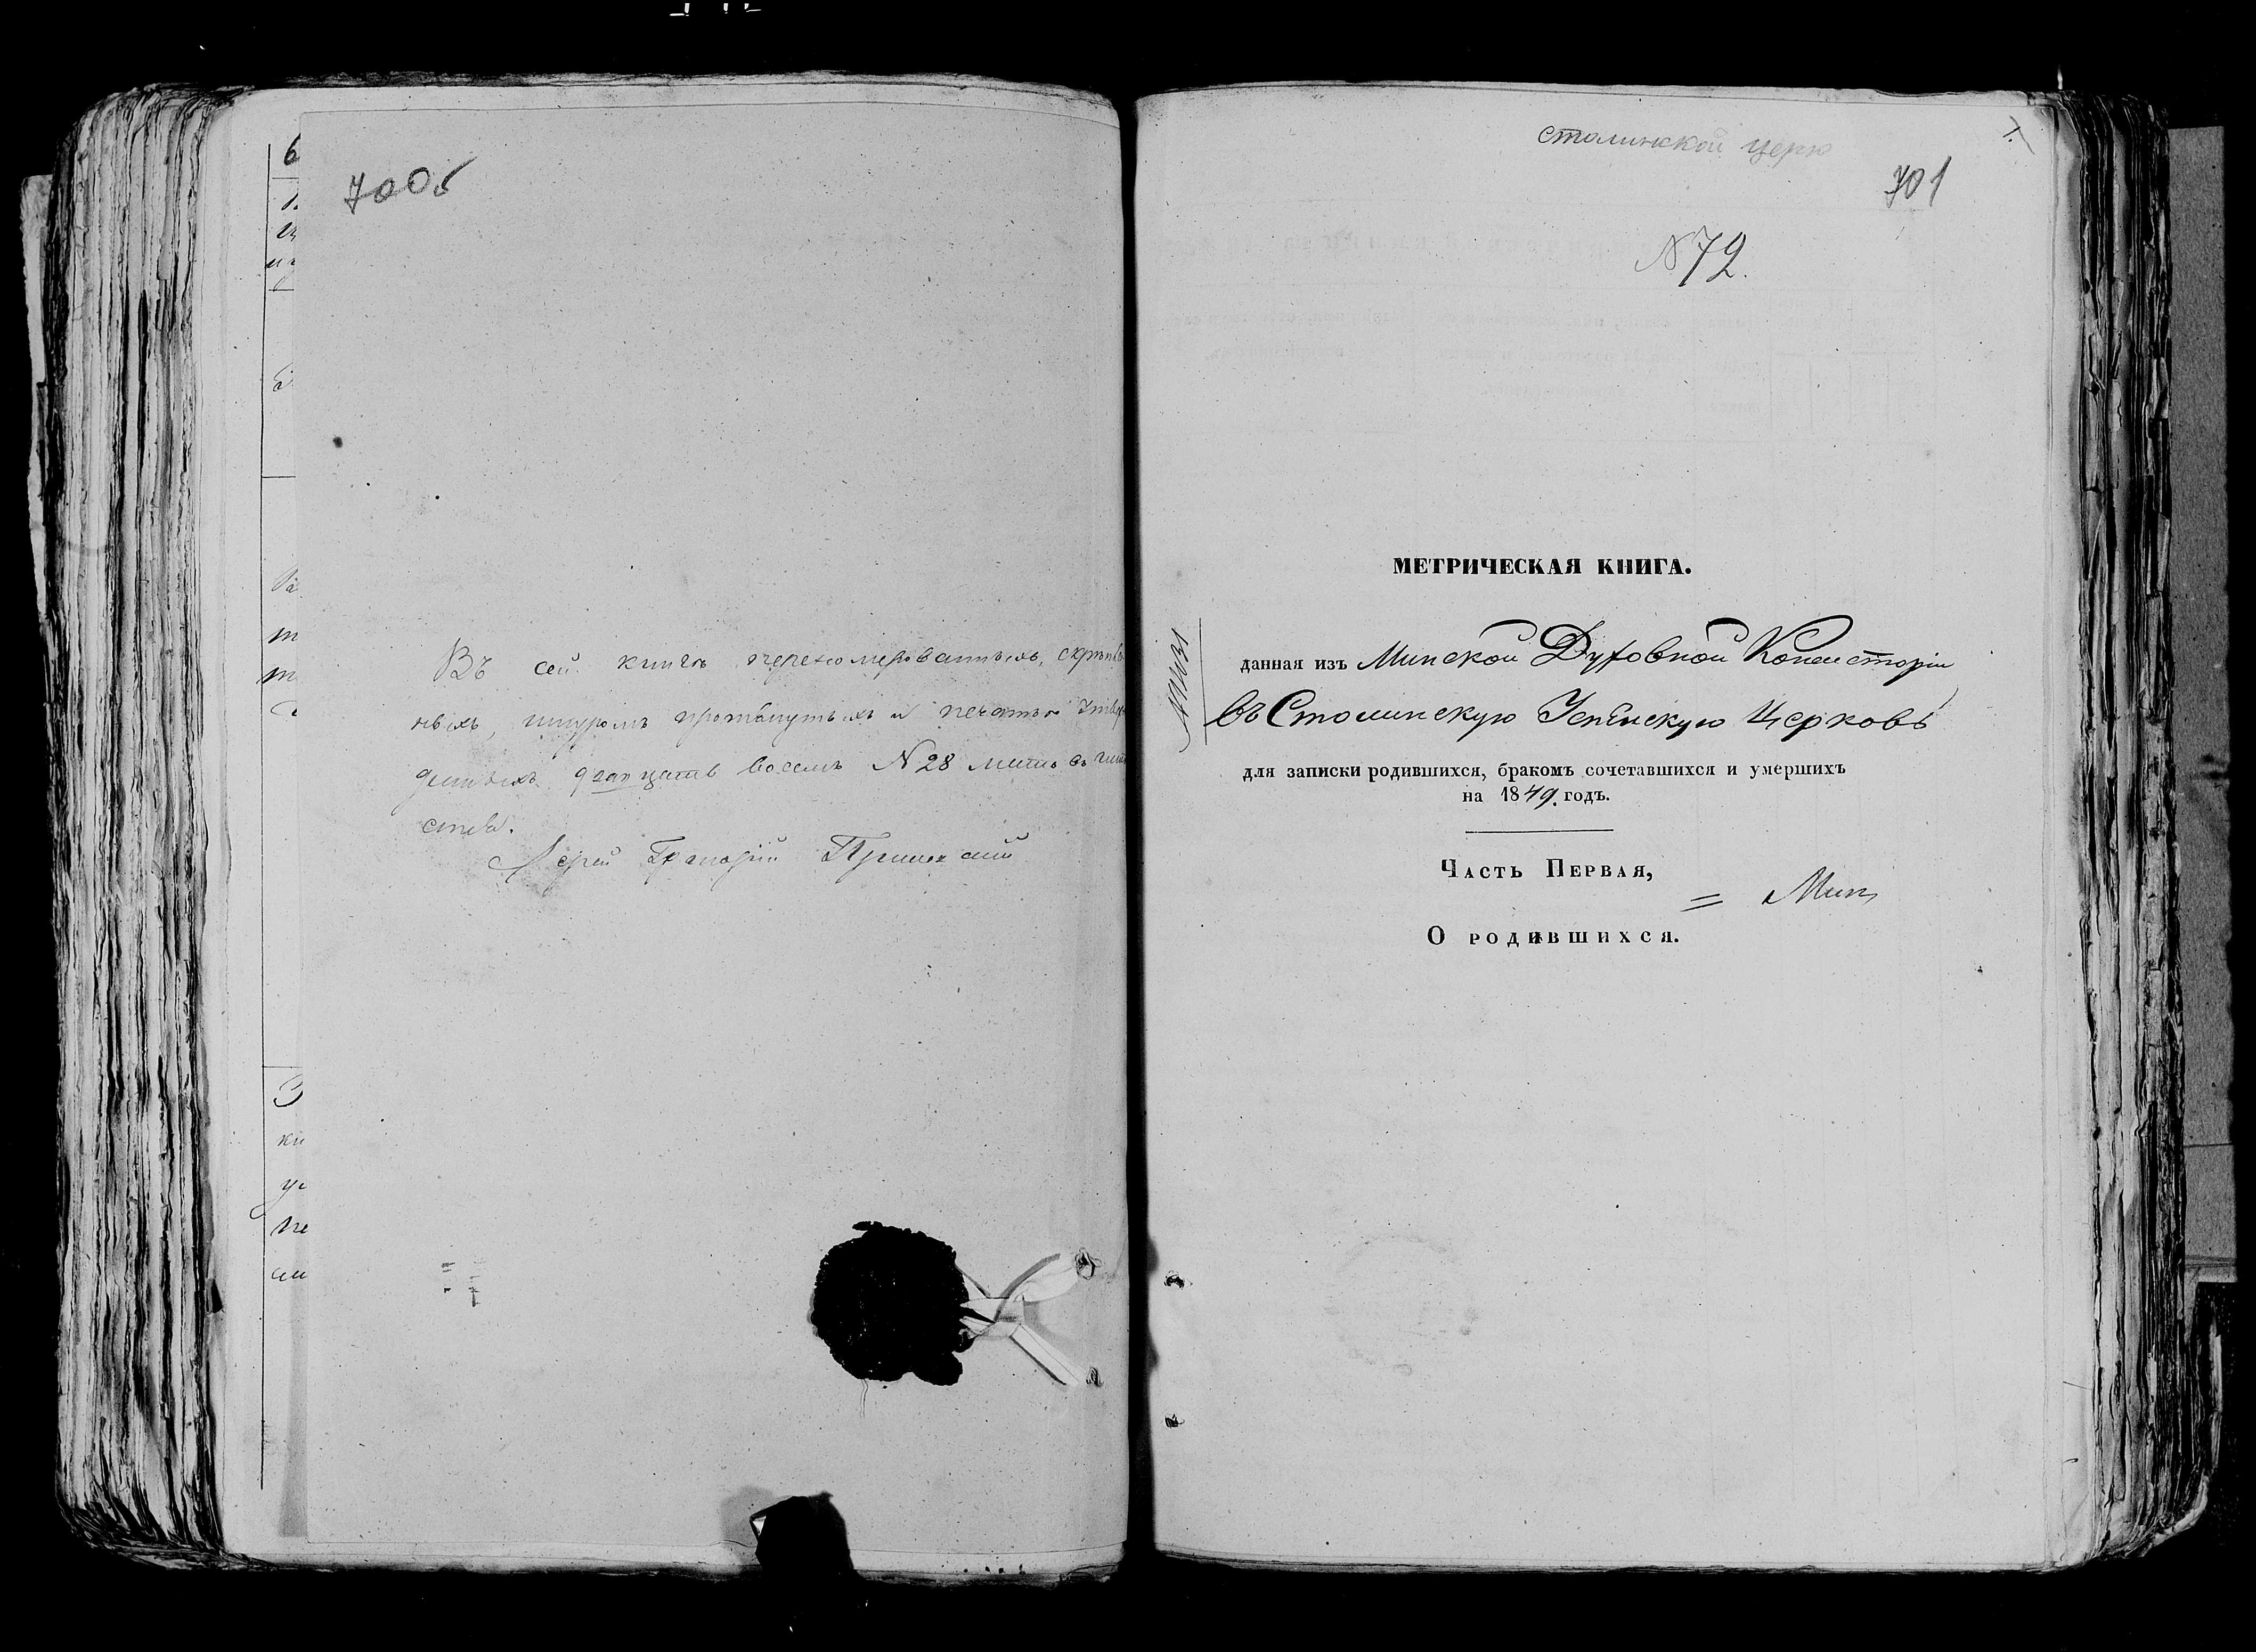 700б
Въ сей книгѣ переномерованныхъ, скрѣпле
ныхъ, шнуромъ протянутыхъ и печатью утвер
денныхъ двадцать восемь N 28 листъ въ
ства.
Іерей Григорій
столинской церк
701
N 72.
МЕТРИЧЕСКАЯ КНИГА.
данная изъ Минской Духовной Консисторіи
въ Столинскую Успенскую Церковь
для записки родившихся, бракомъ сочетавшихся и умершихъ
на 1849. годъ.
Часть Первая,
= Мин
О родившихся.